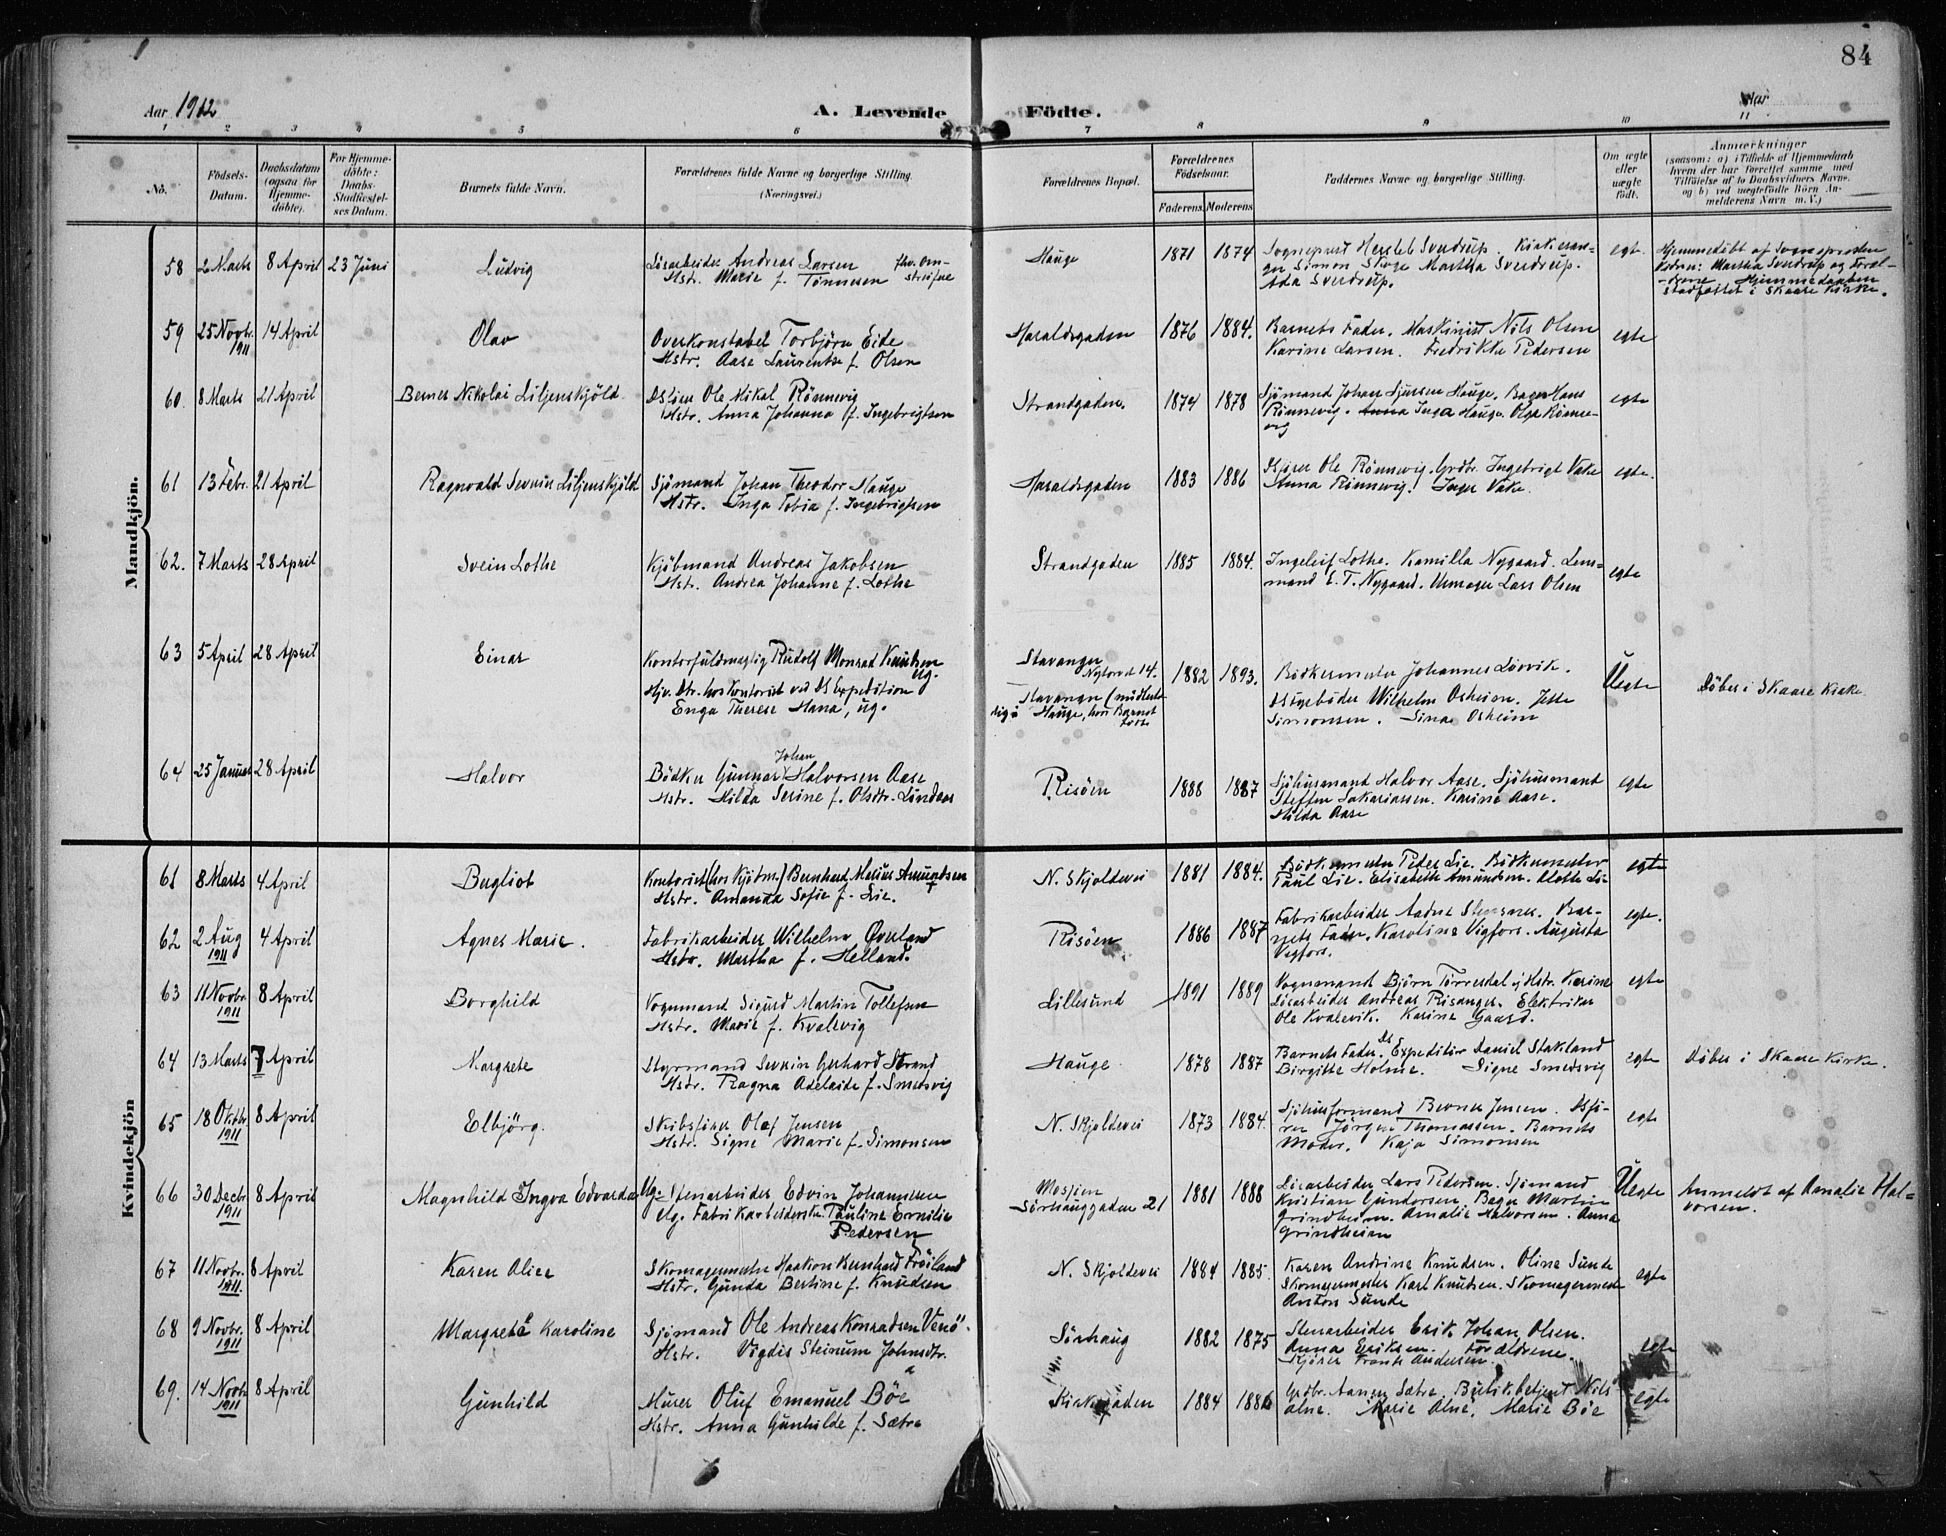 84
Aar 1912
A. Levende Födte.
Aar
1 2 3 4 5 6 7 8 9 10 11
No.
Födsels-Datum.
Daabsdatum (ogsaa for Hjemme-döbte).
For Hjemme-döbte: Daabs-Stadfæstel-ses Datum.
Barnets fulde Navn.
Forældrenes fulde Navne og borgerlige Stilling. (Næringsvei.)
Forældrenes Bopæl.
Forældrenes Födselsaar.
Faderens
Moderens
Faddernes Navne og borgerlige Stilling.
Om ægte eller uægte födt.
Anmærkninger
(saasom: a) i Tilfælde af Hjemmedaab
hvem der har forrettet samme med
Tilföielse af to Daabsvidners Navne.
og b) ved uægtefödte Börn An-
melderens Navn m. V.)
Mandkjön.
58 2 Marts 8 April 23 Juni Ludvig
Lösarbeider Andreas Larsen
Hstr. Marie f. Tönnesen
Hauge 1871 1874
Sogneprest Hersleb Sverdrup. Kirkesan-
ger Simon Stoge Martha Sverdrup.
Ada Sverdrup.
egt.
Hjemmedöbt af Sognepresten
Vidner: Martha Sverdrup og Foræl-
drene Hjemmedaaben
stadfæstet i Skaare Kirke.
59 25 Novbr. 1911 14 April Olav
Overkonstabel Torbjörn Eide
Hstr. Aase Laurentse f. Olsen
Haraldsgaden 1876 1884.
Barnets Fader. Maskinist Nils Olsen
Karine Larsen. Fredrikke Pedersen
egte
60 8 Marts 21 April Bernes Nikolai Liljenskjöld
Ole Mikal Rönnevig
Hstr. Anna Johanna f. Ingebrigtsen
Strandgaden. 1874 1878
Sjömand Johan Sjursen Hauge. Bager Hans
Rönnevig. Anna Inga Hauge. Olga Rönne-
vig
egte
61 13 Febr. 21 April Ragnvald Severin Liljenskjöld
Sjömand Johan Theodor Hauge
Hstr. Inga Tobia f. Ingebrigtsen
Haraldsgaden 1883 1886
Ole Rönnevig. Grdbr. Ingebrigt Vake
Anna Rönnevig. Inger Vake.
egte.
62. 7 Marts 28 April Svein Lothe
Kjöbmand Andreas Jakobsen
Hstr. Andrea Johanne f. Lothe
Strandgaden 1885 1884.
Ingeleif Lothe. Kamilla Nygaard. Lens-
mand E. T. Nygaard. Urmager Lars Olsen
egte
63 5 April 28 April Einar
Kontorfuldmægtig Rudolf Monrad Knutsen
ug.
Hjv. Dtr. hos Kontorist ved DS Expedition
Enga Therese Hana, ug.
Stavanger
Nytorvet 14.
Stavanger (midlerti-
dig i Hauge, hvor Barnet
födte
1882 1893.
Bödkermester Johannes Lövvik.
Wilhelm Osheim. Jette
Simonsen. Sina Osheim
Uegte
Döbet i Skaare Kirke
64 25 Januar 28 April Halvor
Johan
Bödker Gunnar Halvorsen Aase
Hstr. Hilda Serine f. Olsdtr. Lindens
Risöen 1888 1887
Sjöhusmand Halvor Aase. Sjöhusmand
Steffen Sakariassen. Karine Aase.
Hilda Aase
egte
Kvindekjön
61 8 Marts 4 April Bergliot
Kontorist (hos Kjöbm.) Bernhard Marius Amundsen
Hstr. Amanda Sofie f. Lie.
N. Skjoldevei 1881 1884.
Bödkermester Peder Lie. Bödkermester
Paul Lie. Elisabeth Amundsen. Lie
egte
62 2 Aug 1911 4 April Agnes Marie.
Fabrikarbeider Wilhelm Överland
Hstr. Martha f. Helland.
Risöen 1886 1887
Fabrikarbeider Aadne Stensnes. Bar-
nets Fader. Karoline Vigfors. Augusta
Vigfors.
egte.
63 11 Novbr. 1911 8 April Borghild
Vognmand Sigurd Martin Tollefsen
Hstr. Marie f. Kvalevig
Lillesund 1891 1889
Vognmand Björn Törresdal og Hstr. Karine
Lösarbeider Andreas Risanger. Elektriker
Ole Kvalevik. Karine Gaard.
egte
64 13 Marts 7 April Margrete
Styrmand Severin Gerhard Strand
Hstr. Ragna Adelaide f. Smedsvig
Hauge 1878 1887
Barnets Fader. DS Expeditör Daniel Stakland
Birgitte Holme. Signe Smedsvig
egte
Döbet i Skaare Kirke.
65 18 Oktbr 1911 8 April Elbjörg.
Skibsförer Olaf Jensen
Hstr. Signe Marie f. Simonsen
N. Skjoldevei 1873 1884.
Sjöhusformand Berner Jensen.
Jörgen Thomassen. Barnets
Moder. Kaja Simonsen
egte
66 30 Decbr 1911 8 April Magnhild Ingva Edvarda
Ug. Stenarbeider Edvin Johannesen
Ug. Fabrikarbeiderske Pauline Emilie
Pedersen
Mosjöen
Sörhauggaden 21
1881 1888
Lösarbeider Lars Pedersen. Sjömand
Kristian Gundersen. Bager Martin
Grindheim. Amalie Halvorsen. Anna
Grindheim
Uegte
Anmeldt af Amalie Hal-
vorsen.
67 11 Novbr. 1911. 8 April Karen Alice
Skomagermester Haakon Bernhard Fröiland
Hstr. Gunda Bertine f. Knudsen
N. Skjoldevei 1884 1885.
Karen Andrine Knudsen. Oline Sunde
Skomagermester Karl Knudsen. Skomagermester
Anton Sunde
egte
68 9 Novbr. 1911 8 April Margrete Karoline
Sjömand Ole Andreas Konradsen Venö.
Hstr. Vigdis Steinum Johnsdtr.
Sörhaug 1882 1875
Stenarbeider Erik Johan Olsen.
Anna Eriksen. Forældrene.
Kjörer Frants Andersen.
egte
69. 14 Novbr 1911 8 April Gunhild
Murer Oluf Emanuel Böe
Hstr. Anna Gunhilde f. Sætre
Kirkegaden 1884 1886
Grdbr. Aanen Sætre. Butikbetjent Nils
Alne. Marie Alne. Marie Böe
egte